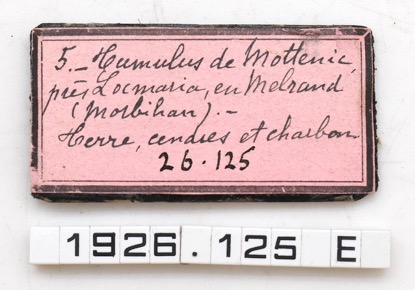 5. - Tumulus de Mottenic,
près Locmaria, en Melrand
(Morbihan). -
Terre, cendres et charbon
26.125
1926.125 E